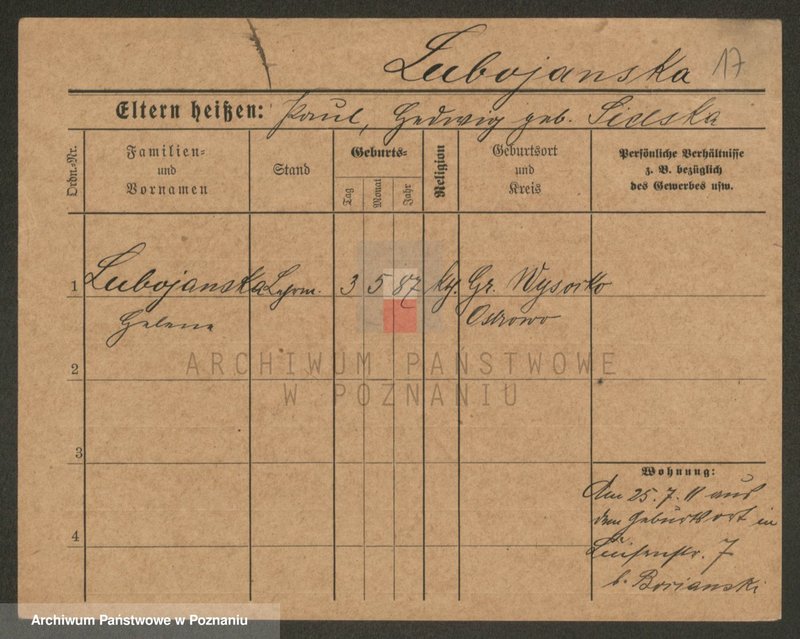 Lubojanska 17
Eltern heißen: Paul, Hedwig geb.
Ordn.-Nr.
Familien-
und
Vornamen
Stand
Geburts-
Tag
Monat
Jahr
Religion
Geburtsort
und
Kreis
Persönliche Verhältnisse
z. B. bezüglich
des Gewerbes usw.
1 Lubojanska 3 5 87 kth. Gr. Wysocko
Helene Ostrowo
ARCHIWUM PAŃSTWOWE
W POZNANIU
2
3
4
Wohnung:
Am 25.7.11 aus
dem Geburtsort in
Luisenstr. 7
b. Borianski
Archiwum Państwowe w Poznaniu